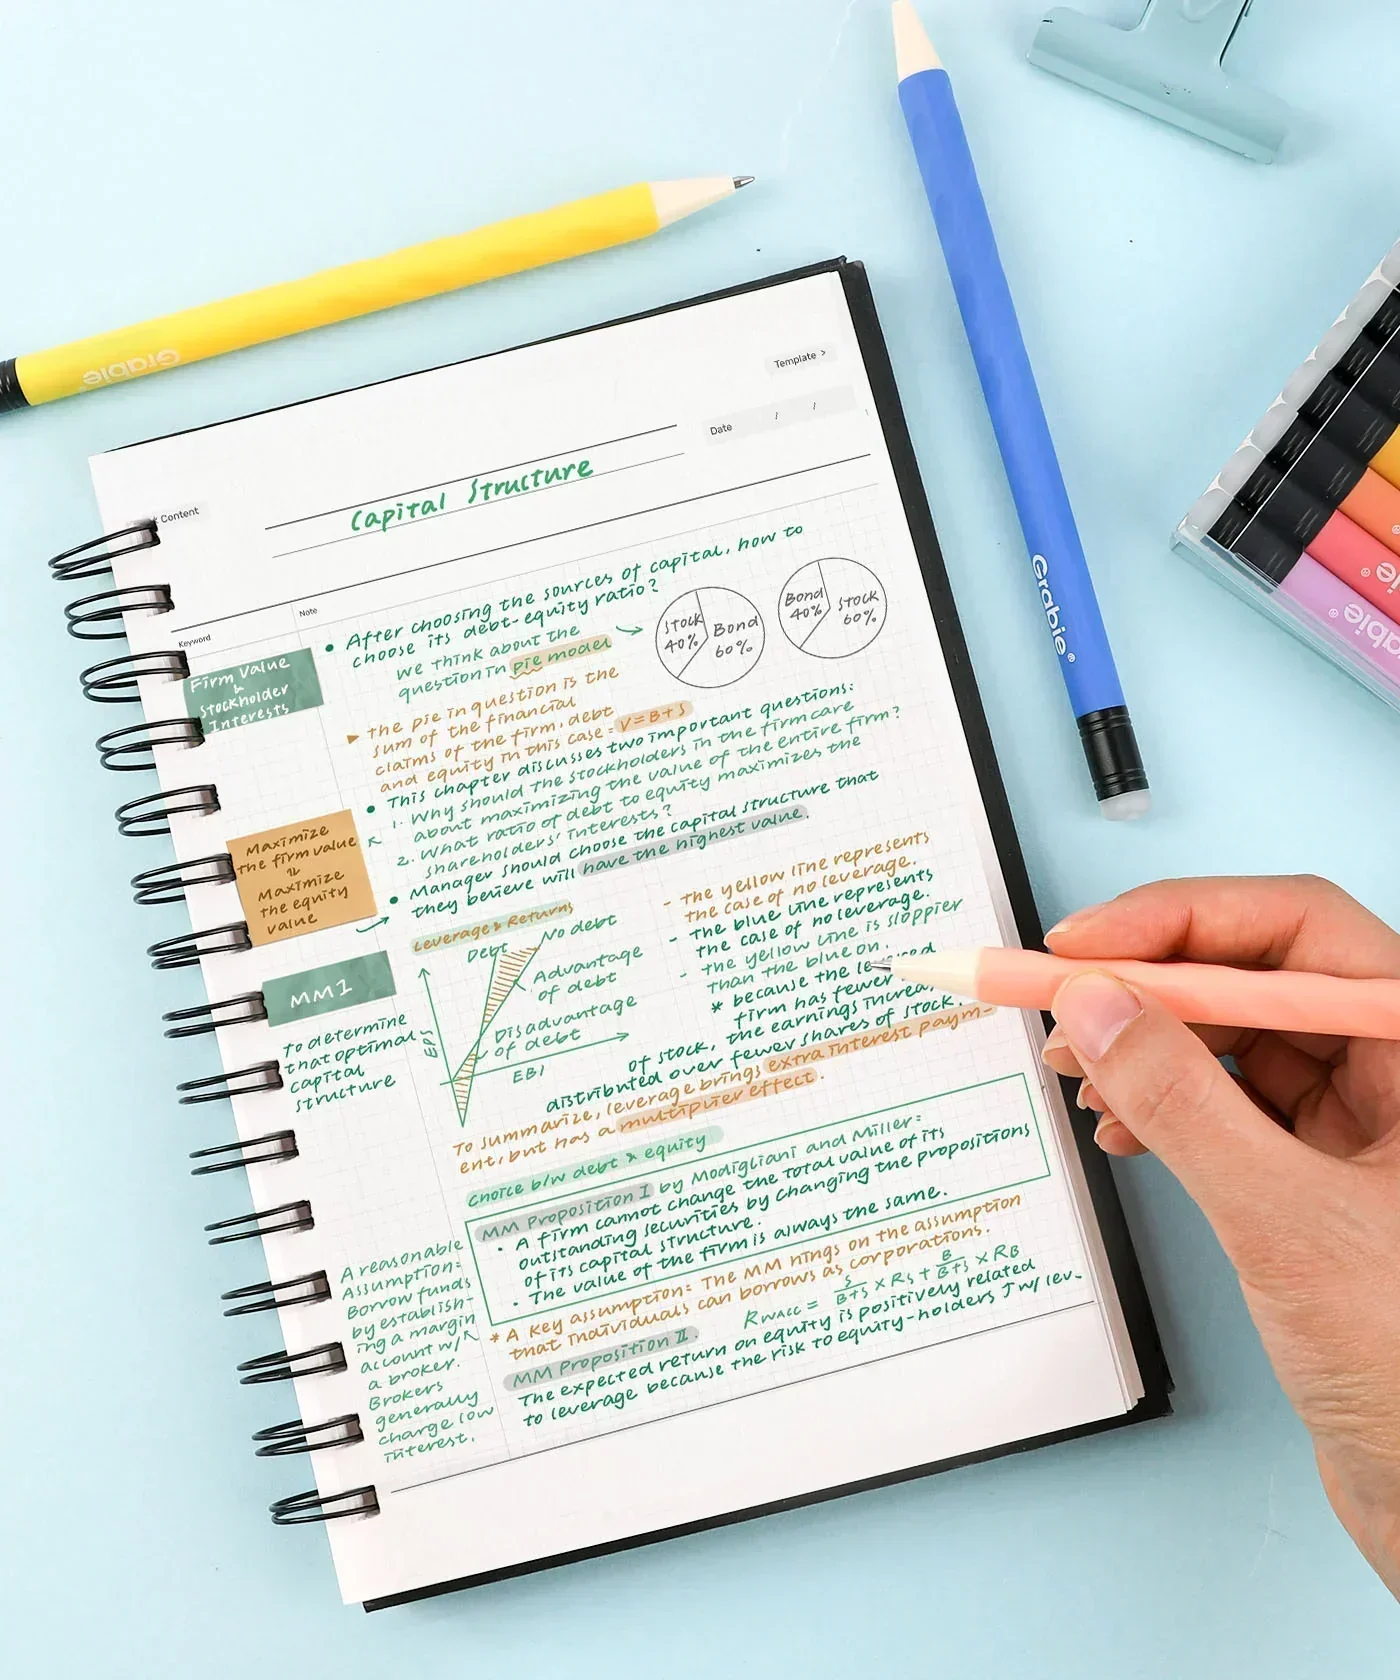 Grabie
Grabie®
Template >
Date / /
Content
Capital Structure
Keyword
Note
Firm Value
&
Stockholder
Interests
• After choosing the sources of capital, how to
choose its debt-equity ratio?
we think about the
question in pie model
Stock
40%
Bond
60%
Bond
40%
Stock
60%
the pie in question is the
sum of the financial
claims of the firm, debt
and equity in this case: V=B+S
• This chapter discusses two important questions:
1. Why should the stockholders in the firm care
about maximizing the value of the entire firm?
2. What ratio of debt to equity maximizes the
shareholders' interests?
• Manager should choose the capital structure that
they believe will have the highest value.
Maximize
the firm value
Maximize
the equity
value
Leverage & Returns
Debt
No debt
Advantage
of debt
Disadvantage
of debt
EPS
EBI
- the yellow line represents
the case of no leverage.
- the blue line represents
the case of no leverage.
- the yellow line is sloppier
than the blue on.
* because the
firm has fewer
of stock, the earnings
distributed over fewer shares of stock.
To summarize, leverage brings extra interest paym-
ent, but has a multiplier effect.
MM1
To determine
that optimal
capital
structure
choice b/w debt & equity
MM Proposition I by Modigliani and Miller:
• A firm cannot change the total value of its
outstanding securities by changing the propositions
of its capital structure.
• The value of the firm is always the same.
* A key assumption: The MM hings on the assumption
that individuals can borrows as corporations.
MM Proposition II.
RWACC = S/B+S × RS + B/B+S × RB
The expected return on equity is positively related
to leverage because the risk to equity-holders ↑ w/ lev-
A reasonable
Assumption:
Borrow funds
by establish-
ing a margin
account w/
a broker.
Brokers
generally
charge low
interest.